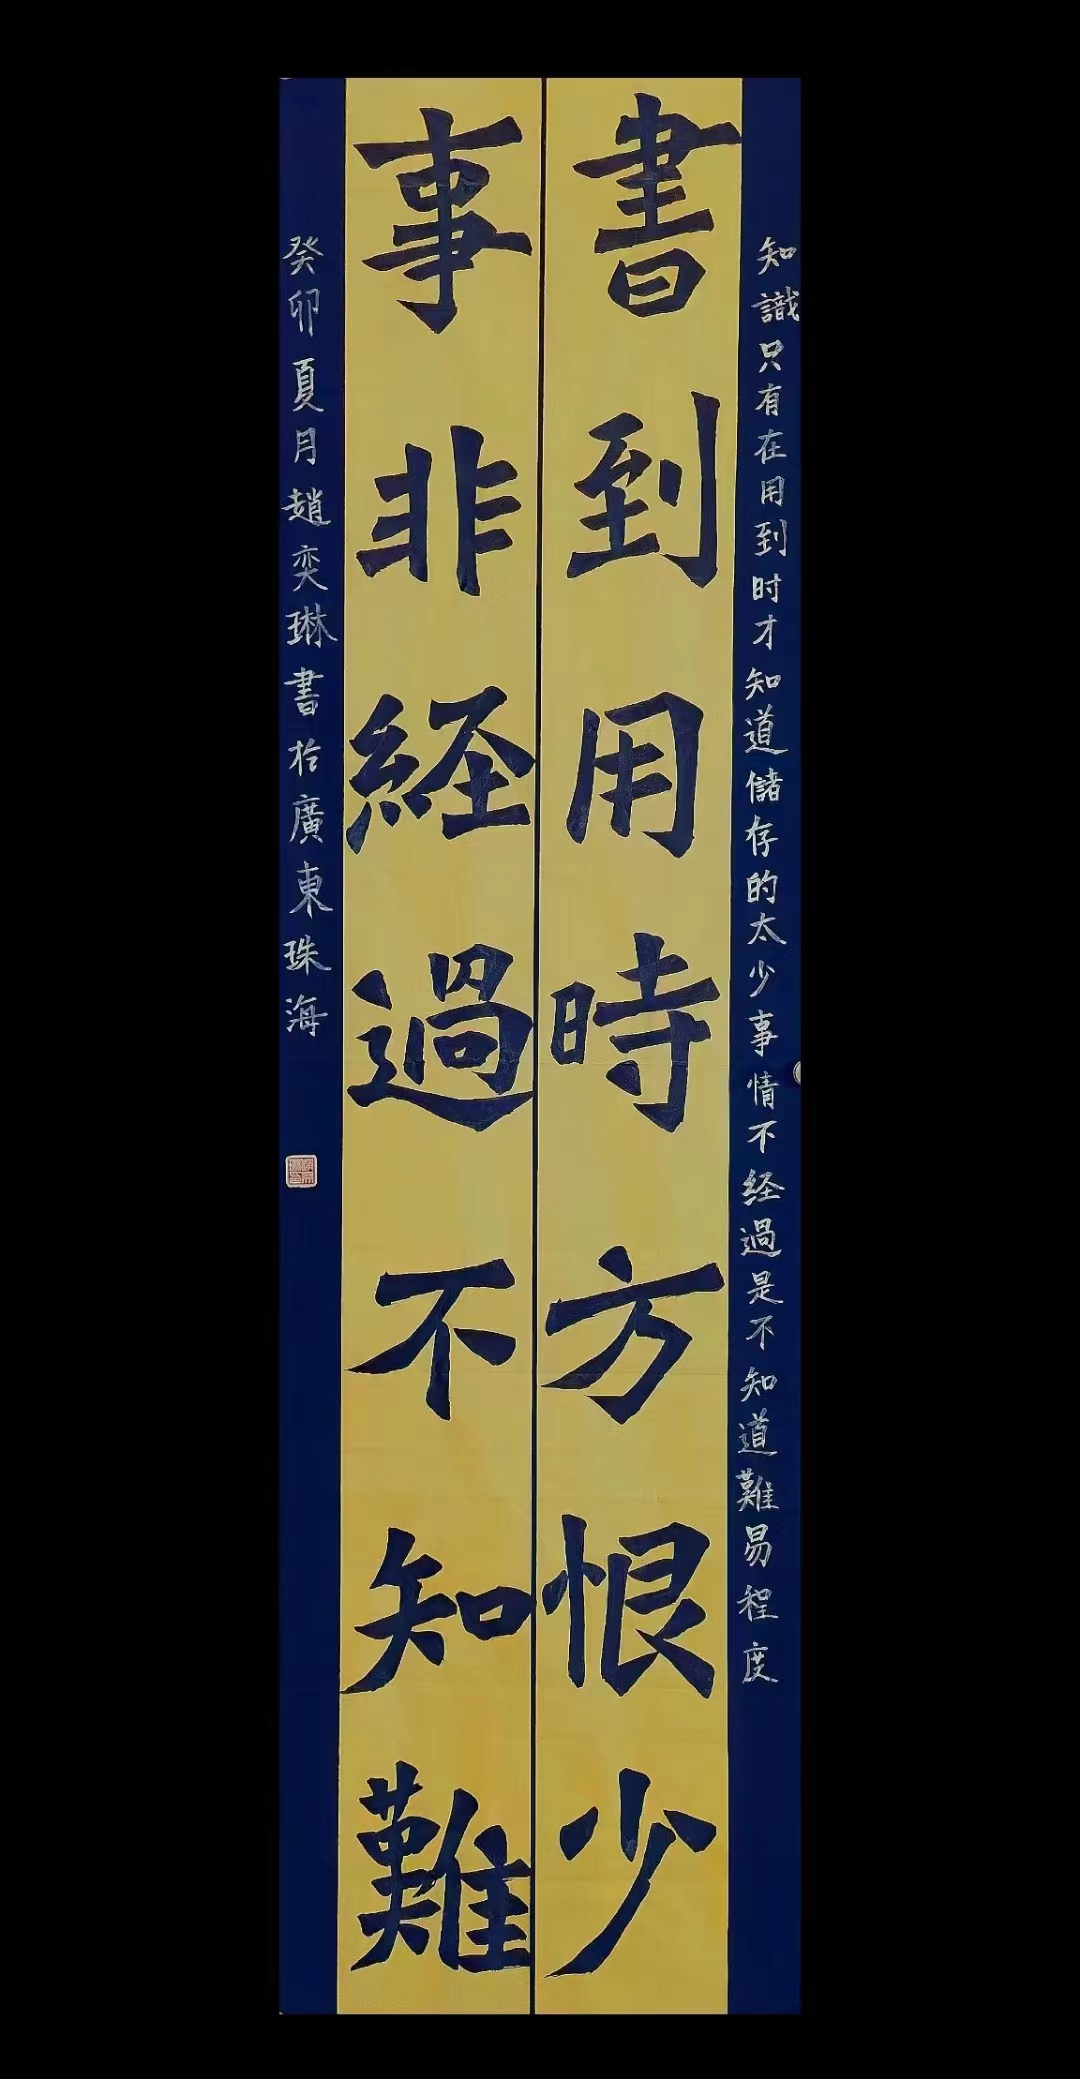 知識只有在用到时才知道儲存的太少事情不经過是不知道難易程度
書到用時方恨少
事非経過不知難
癸卯夏月趙奕琳書於廣東珠海